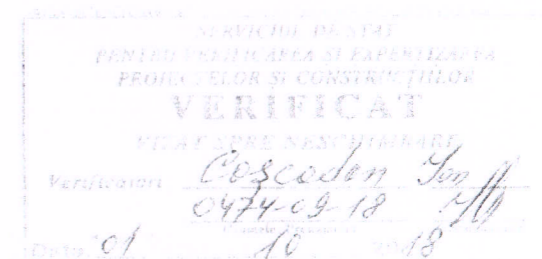 SERVICIUL DE STAT
PENTRU VERIFICAREA ŞI EXPERTIZAREA
PROIECTELOR ŞI CONSTRUCŢIILOR
VERIFICAT
VIZAT SPRE NESCHIMBARE
Verificator: Coşcodan Ion
0474-09-18
Data 01 10 2018